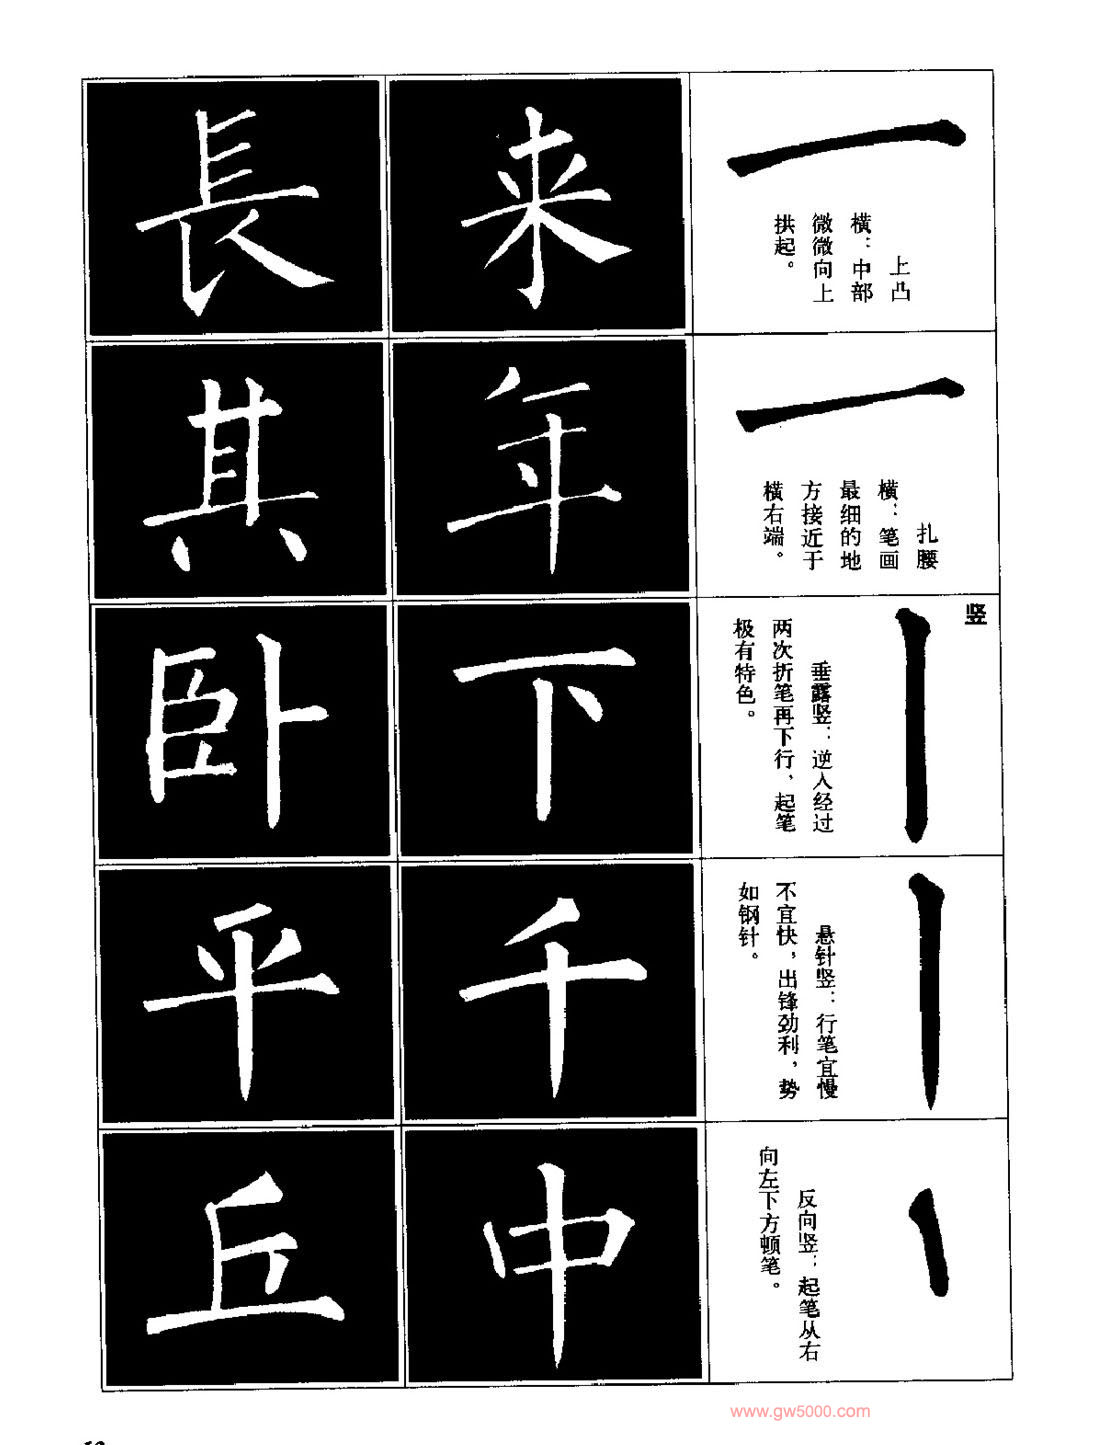 上凸
横：中部
微微向上
拱起。
来
長
扎腰
横：笔画
最细的地
方接近于
横右端。
年
其
竖
垂露竖：逆入经过
两次折笔再下行，起笔
极有特色。
下
卧
悬针竖：行笔宜慢
不宜快，出锋劲利，势
如钢针。
千
平
反向竖：起笔从右
向左下方顿笔。
中
丘
www.gw5000.com